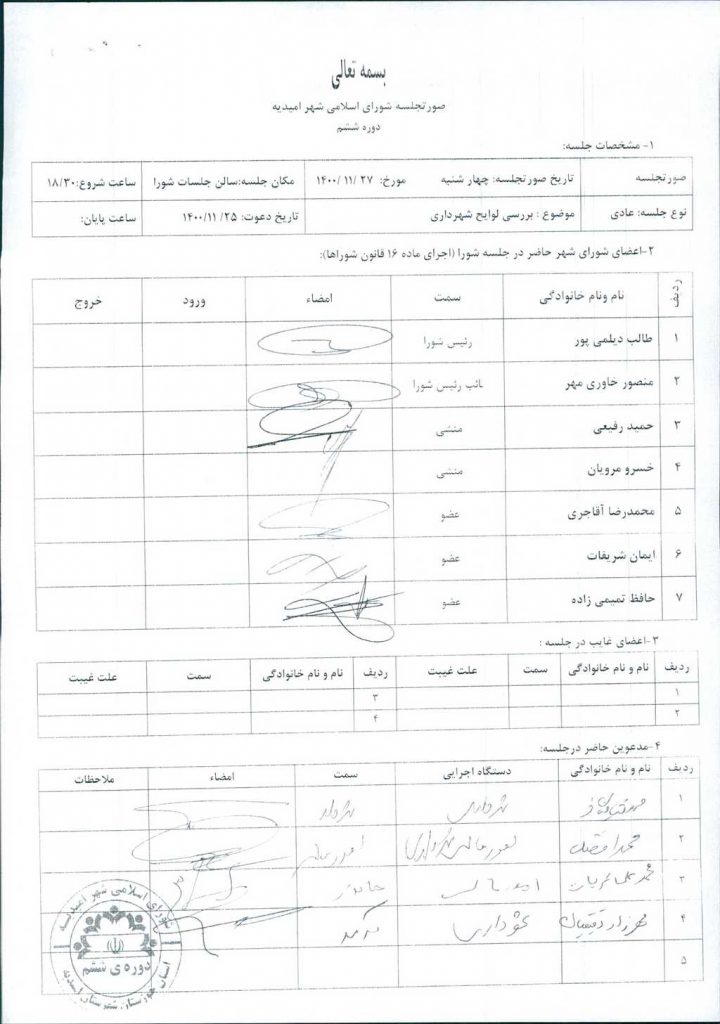 بسمه تعالی
صورتجلسه شورای اسلامی شهر امیدیه
دوره ششم
۱- مشخصات جلسه:
صورتجلسه تاریخ صورتجلسه: چهار شنبه مورخ: ۱۴۰۰/۱۱/۲۷ مکان جلسه:سالن جلسات شورا ساعت شروع:۱۸/۳۰
نوع جلسه: عادی موضوع : بررسی لوایح شهرداری تاریخ دعوت: ۱۴۰۰/۱۱/۲۵ ساعت پایان:
۲-اعضای شورای شهر حاضر در جلسه شورا (اجرای ماده ۱۶ قانون شوراها):
ردیف نام ونام خانوادگی سمت امضاء ورود خروج
۱ طالب دیلمی پور رئیس شورا
۲ منصور خاوری مهر نائب رئیس شورا
۳ حمید رفیعی منشی
۴ خسرو مرویان منشی
۵ محمدرضا آقاجری عضو
۶ ایمان شریفات عضو
۷ حافظ تمیمی زاده عضو
۳-اعضای غایب در جلسه :
ردیف نام و نام خانوادگی سمت علت غیبت ردیف نام و نام خانوادگی سمت علت غیبت
۱ ۳
۲ ۴
۴-مدعوین حاضر درجلسه:
ردیف نام و نام خانوادگی دستگاه اجرایی سمت امضاء ملاحظات
۱ شهرداری شهردار
۲ محمد
۳
۴ شهرداری
۵
شورای اسلامی شهر امیدیه
دوره ی ششم
استان خوزستان شهرستان امیدیه